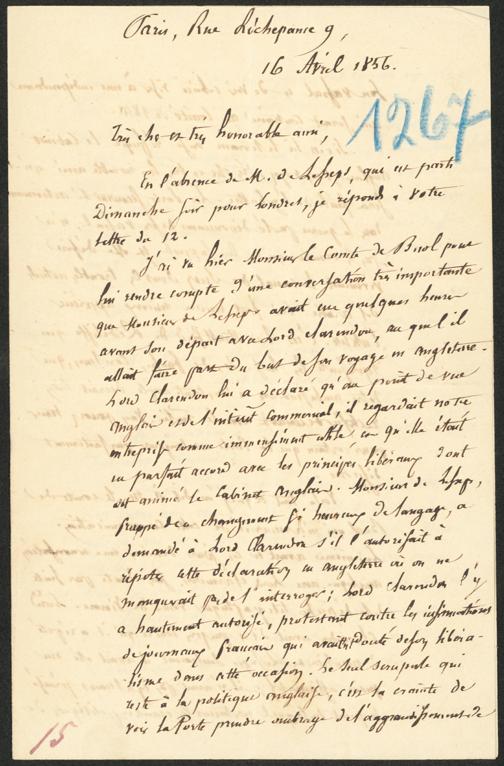 Paris, Rue Richepance 9,
16 Avril 1856.
1267
Très cher et très honorable ami,
En l'absence de M. de Lesseps, qui est parti
Dimanche soir pour Londres, je réponds à votre
lettre du 12.
J'ai vu hier Monsieur le Comte de Buol pour
lui rendre compte d'une conversation très importante
que Monsieur de Lesseps avait eue quelques heures
avant son départ avec Lord Clarendon, auquel il
allait faire part du but de son voyage en Angleterre.
Lord Clarendon lui a déclaré qu'au point de vue
anglais et de l'intérêt commercial, il regardait notre
entreprise comme immensément utile et qu'elle était
en parfait accord avec les principes libéraux dont
est animé le Cabinet anglais. Monsieur de Lesseps,
frappé de ce changement si heureux de langage, a
demandé à Lord Clarendon s'il l'autorisait à
répéter cette déclaration en Angleterre où on ne
manquerait pas de l'interroger; Lord Clarendon l'y
a hautement autorisé, protestant contre les insinuations
de journaux français qui avaient douté de son libéra-
lisme dans cette occasion. Le seul scrupule qui
reste à la politique anglaise, c'est la crainte de
voir la Porte prendre ombrage de l'aggrandissement de
15